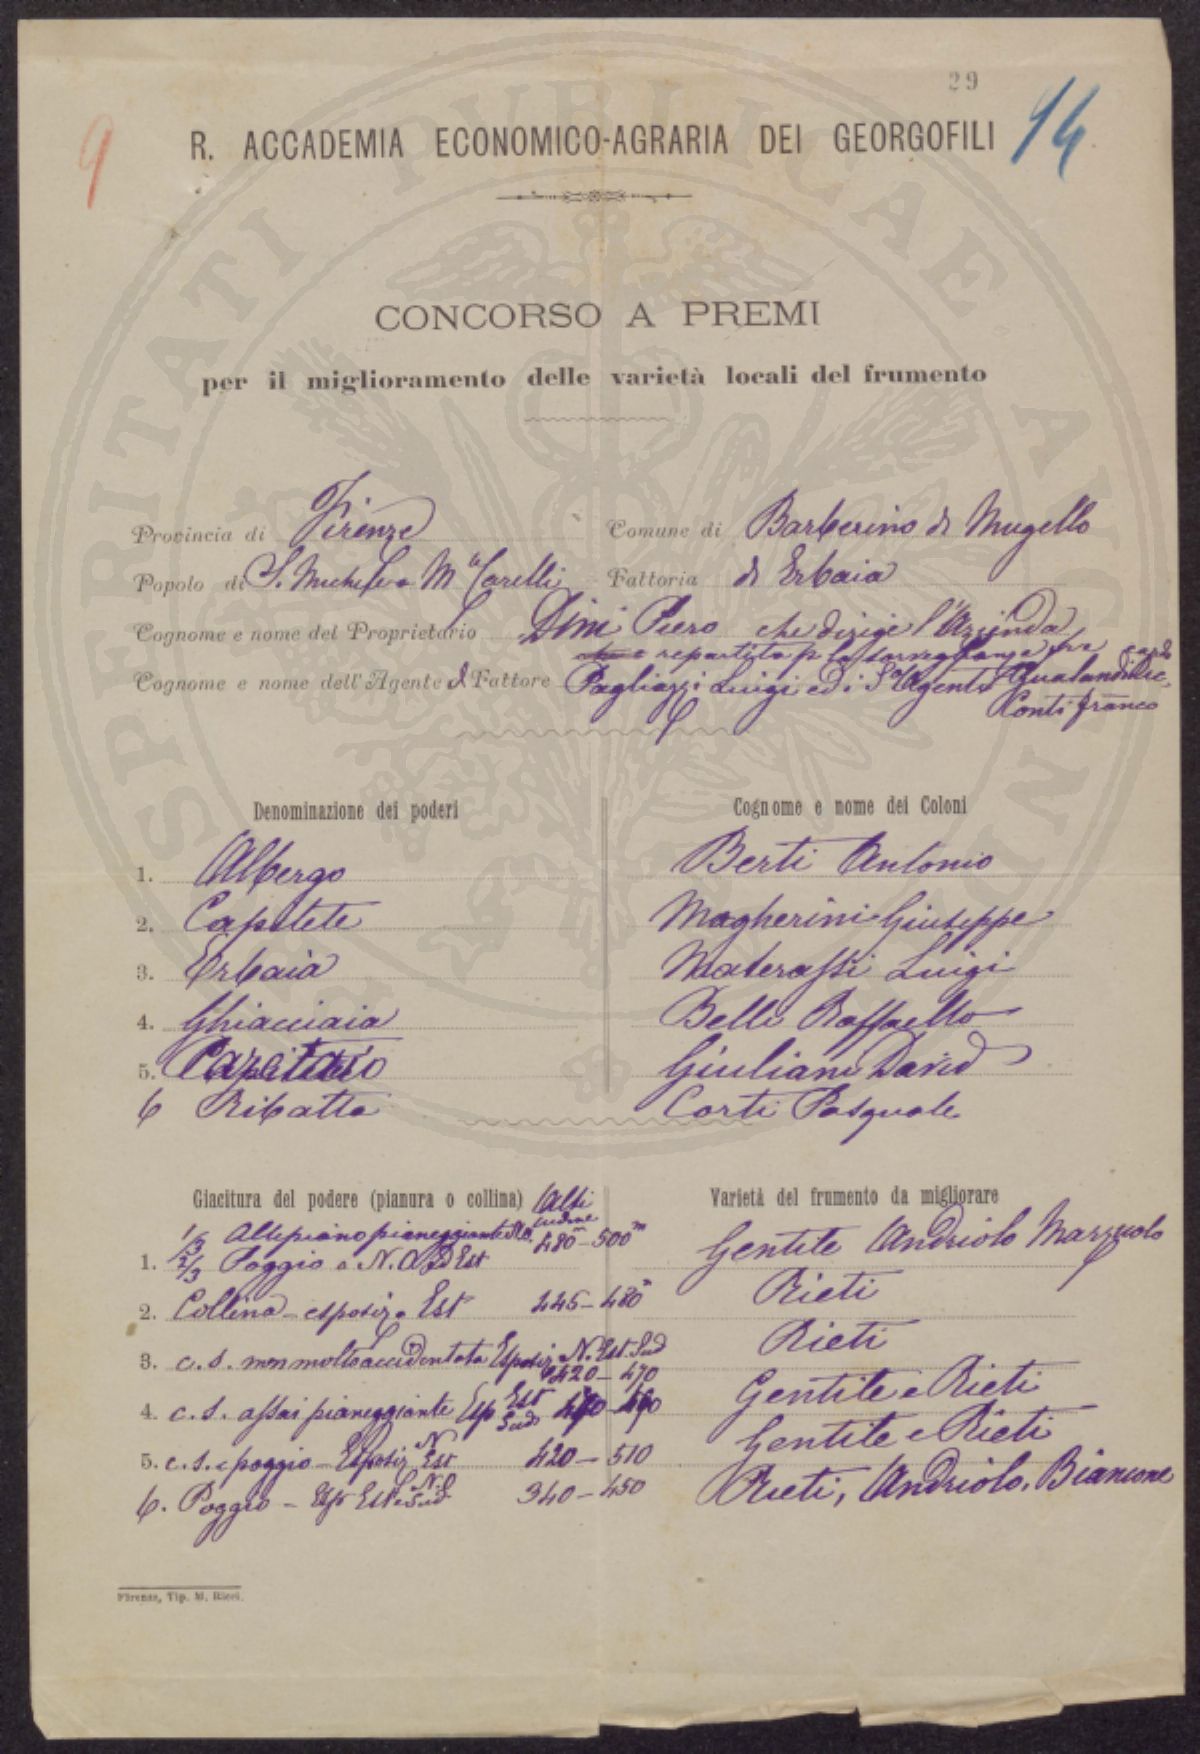 29
9
14
R. ACCADEMIA ECONOMICO-AGRARIA DEI GEORGOFILI
CONCORSO A PREMI
per il miglioramento delle varietà locali del frumento
Provincia di Firenze
Comune di Barberino di Mugello
Popolo di S. Michele a M Carelli
Fattoria di Erbaia
Cognome e nome del Proprietario Dini Piero che dirige l'Azienda
repartita p la sorveglianza fra
Cognome e nome dell'Agente o Fattore Pagliazzi Luigi ed i Agenti Gualandi
Conti Franco
Denominazione dei poderi
Cognome e nome dei Coloni
1. Albergo
Berti Antonio
2. Capitete
Magherini Giuseppe
3. Erbaia
Materassi Luigi
4. Ghiacciaia
Belli Raffaello
5.
Giuliani David
6 Ribatta
Corti Pasquale
Giacitura del podere (pianura o collina) Altitudine
Varietà del frumento da migliorare
1. 1/3 Altipiano pianeggiante 480 - 500 m
2/3 Poggio a N. Est
Gentile Andriolo Mazzuolo
2. Collina - esposiz. Est 445 - 480 m
Rieti
3. c. s. non molto accidentata Esposiz. N. Est Sud
420 - 470
Rieti
4. c. s. assai pianeggiante Esp Est Sud
Gentile e Rieti
5. c. s. e poggio - Esposiz N Est 420 - 510
Gentile e Rieti
6. Poggio - Esp Est 340 - 450
Rieti, Andriolo, Biancone
Firenze, Tip. M. Ricci.
SPERITATI PVBLICAE AVGENDAE